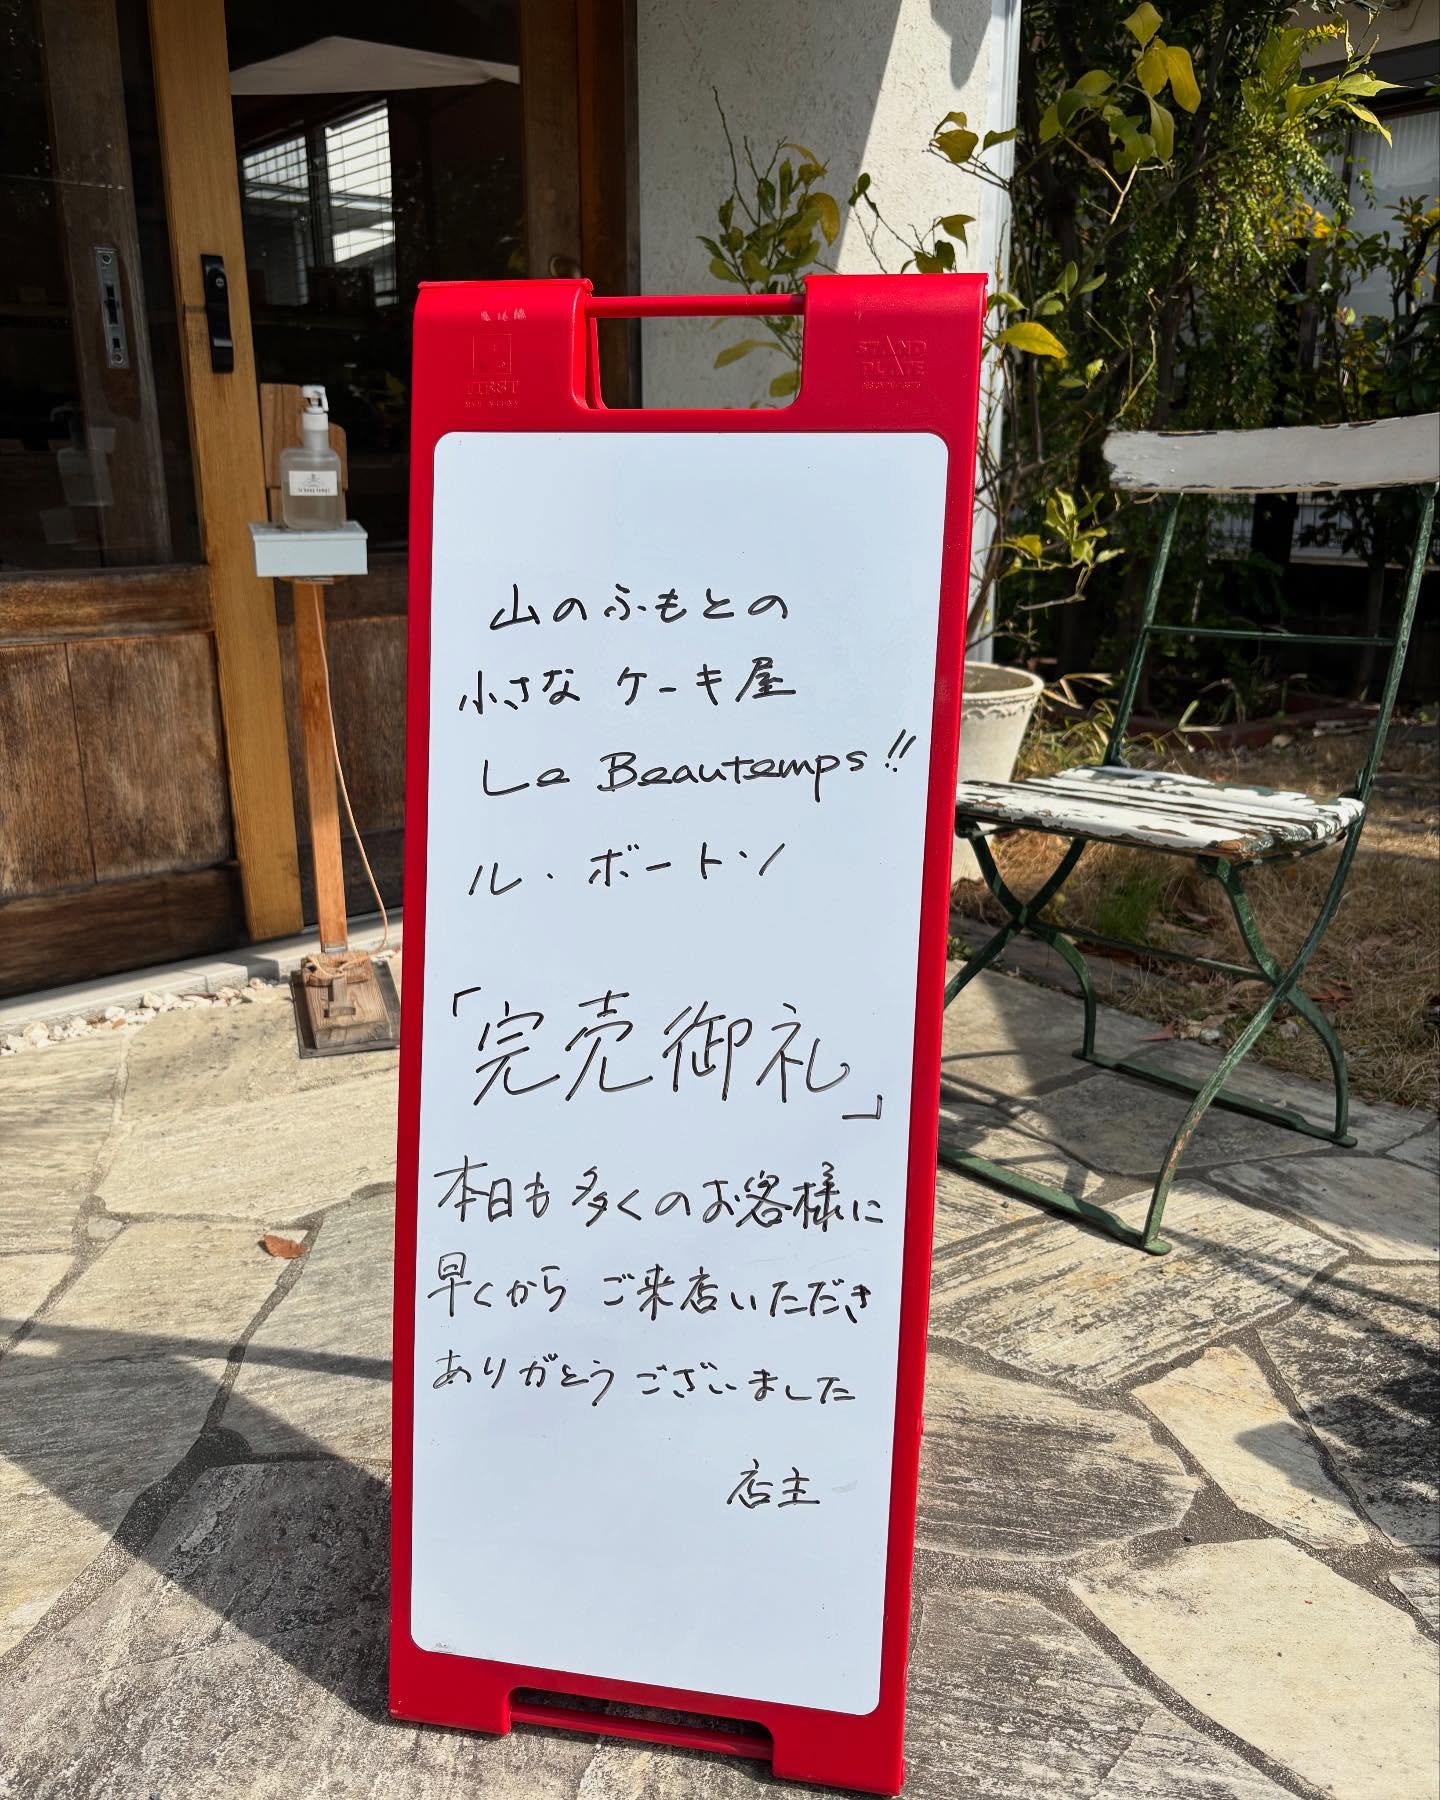 FIRST
STAND
PLATE
le beau temps
山のふもとの
小さな ケーキ屋
Le Beautemps!!
ル・ボートン
「完売御礼」
本日も多くのお客様に
早くから ご来店いただき
ありがとうございました
店主